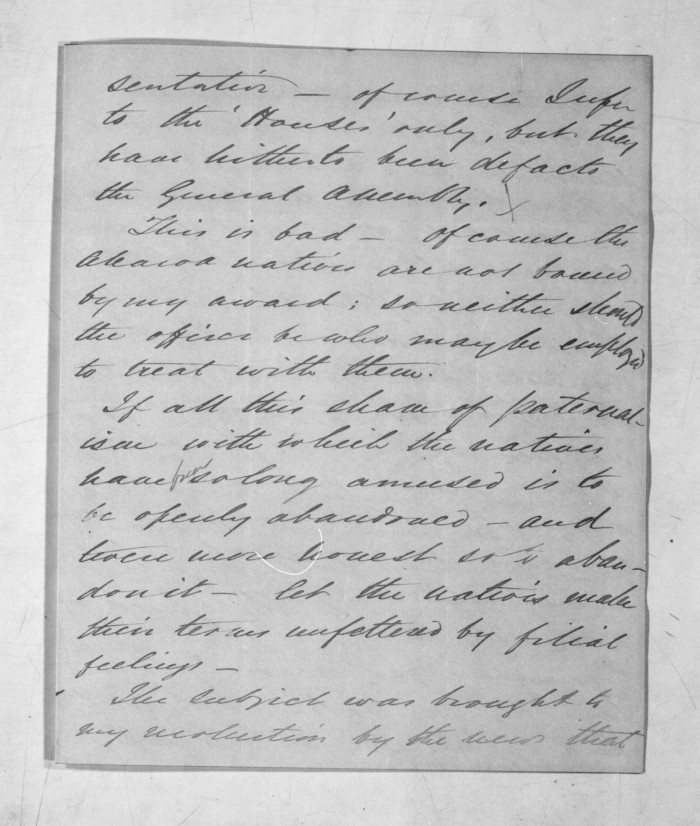 sentation — of course I refer
to the 'Houses' only, but they
have hitherto been defacto
the General Assembly.
This is bad — of course the
Akaroa natives are not bound
by my award; so neither should
the officer be who may be employed
to treat with them.
If all this sham of paternal-
ism with which the natives
have been so long amused is to
be openly abandoned — and
twere more honest so to aban-
don it — let the natives make
their terms unfettered by filial
feelings —
The subject was brought to
my recollection by the news that